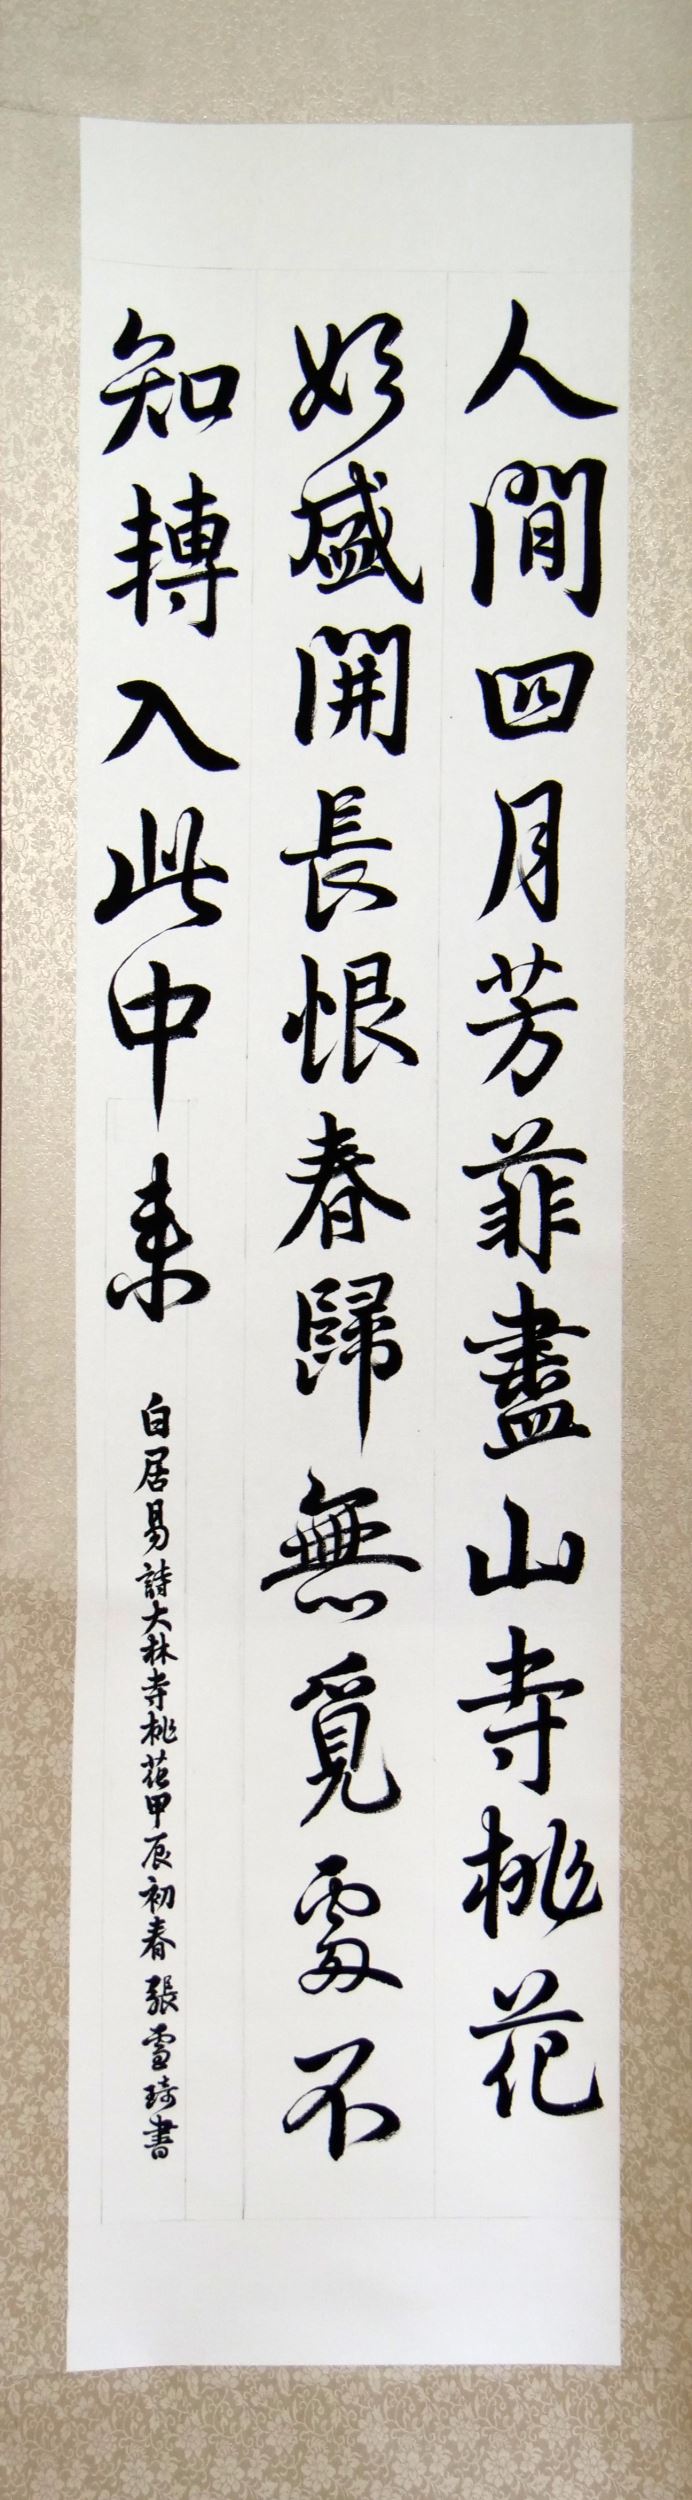 人間四月芳菲盡山寺桃花
始盛開長恨春歸無覓處不
知轉入此中來
白居易詩大林寺桃花甲辰初春張雪琦書